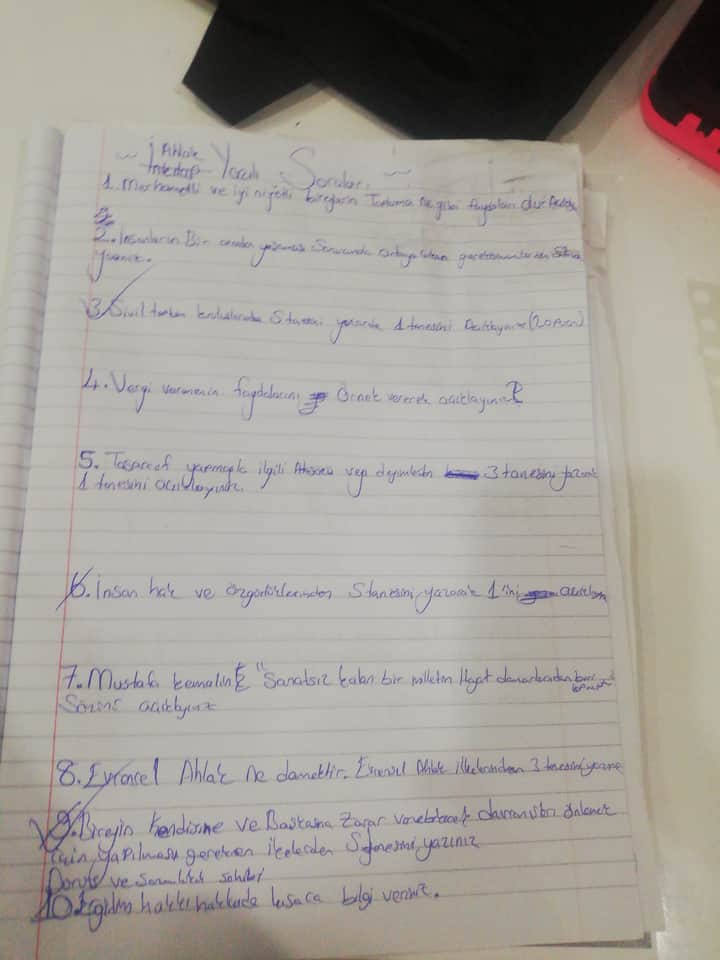 Ahlak
Yazılı Soruları
1. Merhametli ve iyi niyetli bireylerin Topluma Ne gibi faydaları dur
2. İnsanların Bir arada yaşaması Sonucunda ortaya
yazınız.
3. Sivil toplum kuruluşlarından 5 tanesini yazarak 1 tanesini Açıklayınız (20 Puan)
4. Vergi vermenin faydalarını Örnek vererek açıklayınız?
5. Tasarruf yapmayla ilgili Atasözü veya deyimlerden 3 tanesini yazarak
1 tanesini açıklayınız.
6. İnsan hak ve özgürlüklerinden 5 tanesini yazarak 1'ini
7. Mustafa kemalin "Sanatsız kalan bir milletin Hayat damarlarından biri
Sözünü açıklayınız
8. Evrensel Ahlak ne demektir. Evrensel Ahlak ilkelerinden 3 tanesini yazınız
9. Bireyin Kendisine ve Başkasına Zarar verebilecek davranışları önlemek
için Yapılması gereken ilkelerden 5 tanesini yazınız
ve Sorumluluk sahibi
10. Eğitim hakkı hakkında kısaca bilgi veriniz.